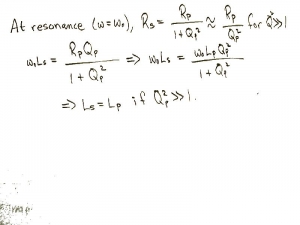 At resonance (ω=ω₀), Rs = Rp / (1+Qp²) ≈ Rp / Qp² for Q²≫1
ω₀Ls = RpQp / (1+Qp²) ⇒ ω₀Ls = ω₀LpQp² / (1+Qp²)
⇒ Ls = Lp if Qp²≫1.